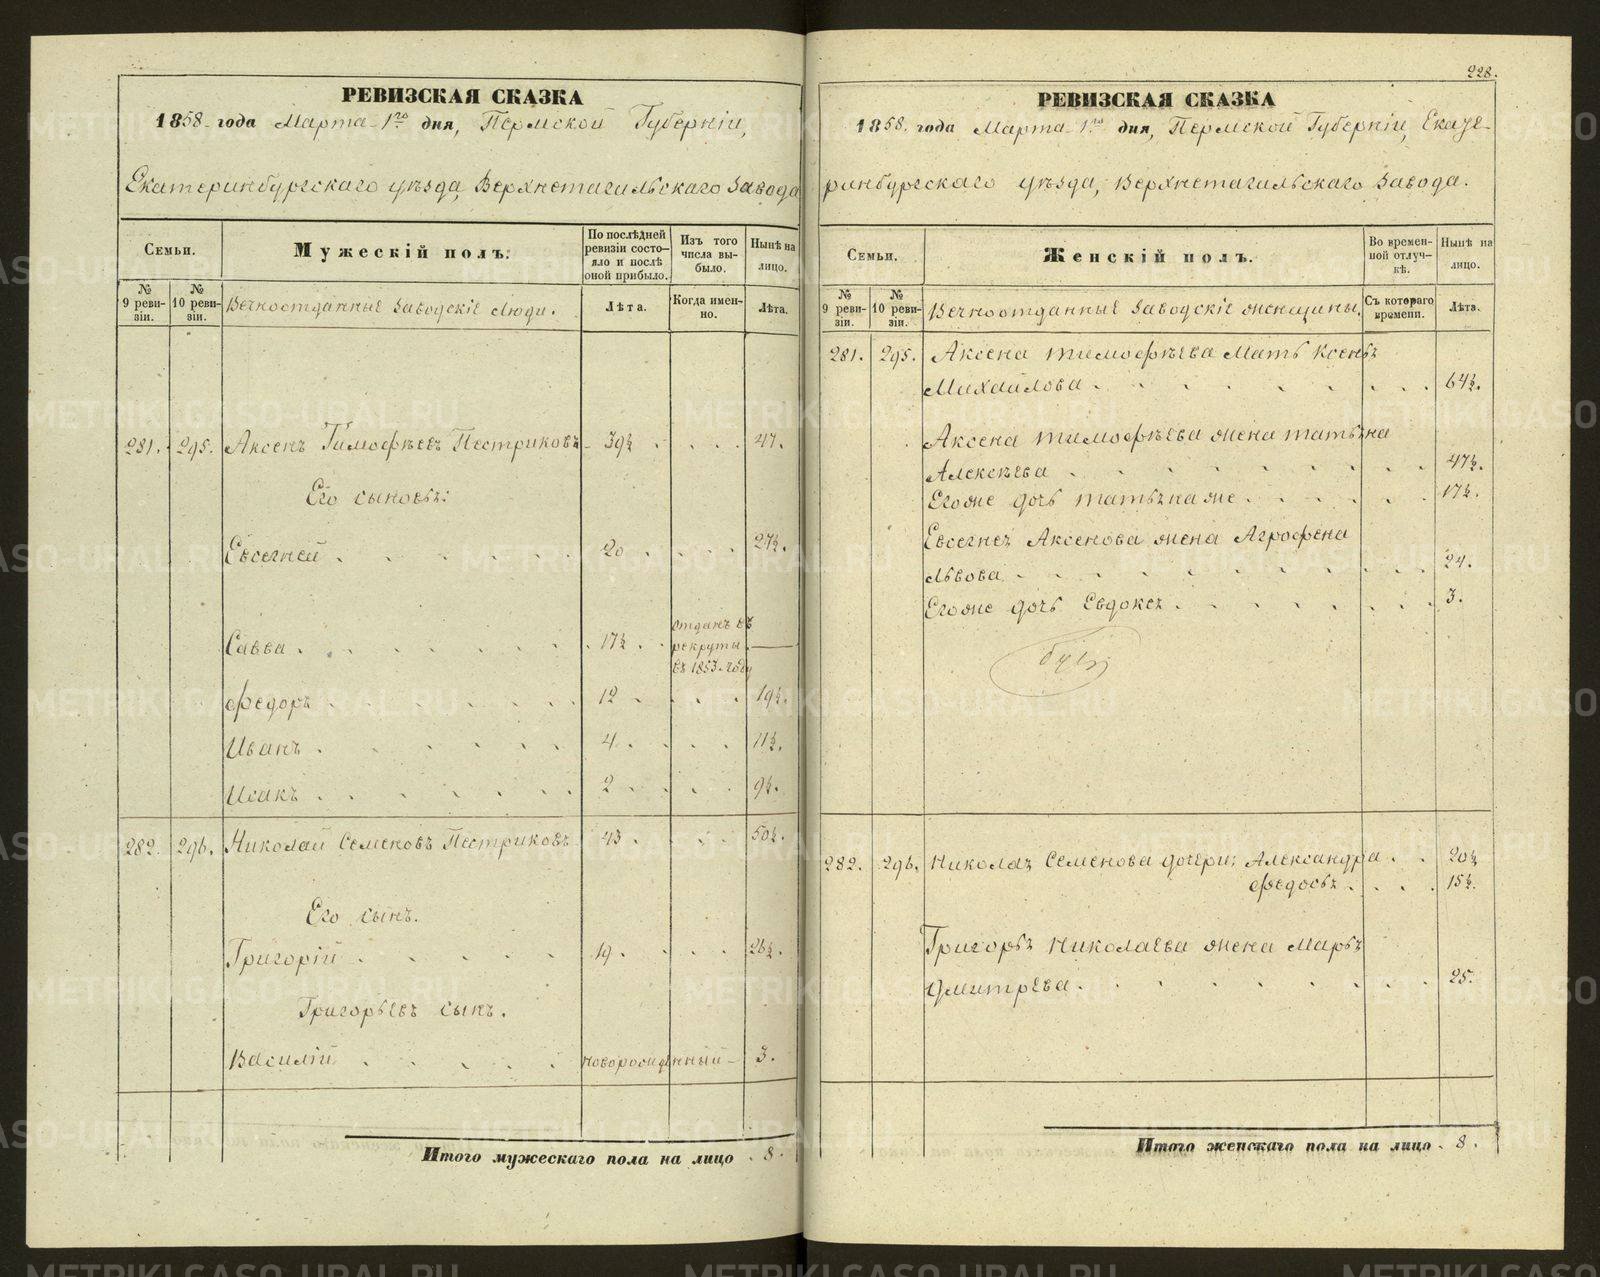 РЕВИЗСКАЯ СКАЗКА
1858 года Марта 1го дня, Пермской Губернiи,
Екатеринбургскаго уѣзда, Верхнетагильскаго Завода
Семьи.
Мужескiй полъ.
По послѣдней ревизiи состояло и послѣ оной прибыло.
Изъ того числа выбыло.
Нынѣ на лицо.
№ 9 ревизiи.
№ 10 ревизiи.
Вечноотданные Заводскiе Люди.
Лѣта.
Когда именно.
Лѣта.
281. 295. Аксенъ Тимофѣевъ Пестриковъ 39½ 47.
Его сыновья:
Евсегней 20 27½.
Савва 17½ отданъ въ рекруты въ 1853 году
Федоръ 12 19½.
Иванъ 4 11½.
Исакъ 2 9½.
282. 296. Николай Семеновъ Пестриковъ 43 50½.
Его сынъ.
Григорiй 19 26½.
Григорьевъ сынъ.
Василiй новорожденный 3.
Итого мужескаго пола на лицо 8.
228.
РЕВИЗСКАЯ СКАЗКА
1858 года Марта 1го дня, Пермской Губернiи, Екате-
ринбургскаго уѣзда, Верхнетагильскаго Завода.
Семьи.
Женскiй полъ.
Во временной отлучкѣ.
Нынѣ на лицо.
№ 9 ревизiи.
№ 10 ревизiи.
Вечноотданные Заводскiе женщины.
Съ котораго времени.
Лѣта.
281. 295. Аксена Тимофѣева Мать
Михайлова 64½.
Аксена Тимофѣева жена Татьяна
Алексѣева 47½.
Егоже дочь Татьяна же 17½.
Евсегнея Аксенова жена Агрофена
Львова 24.
Егоже дочь Евдокея 3.
282. 296. Николая Семенова дочери: Александра 20½
Федосья 15½.
Григорья Николаева жена Марья
Дмитрева 25.
Итого женскаго пола на лицо 8.
METRIKI.GASO-URAL.RU